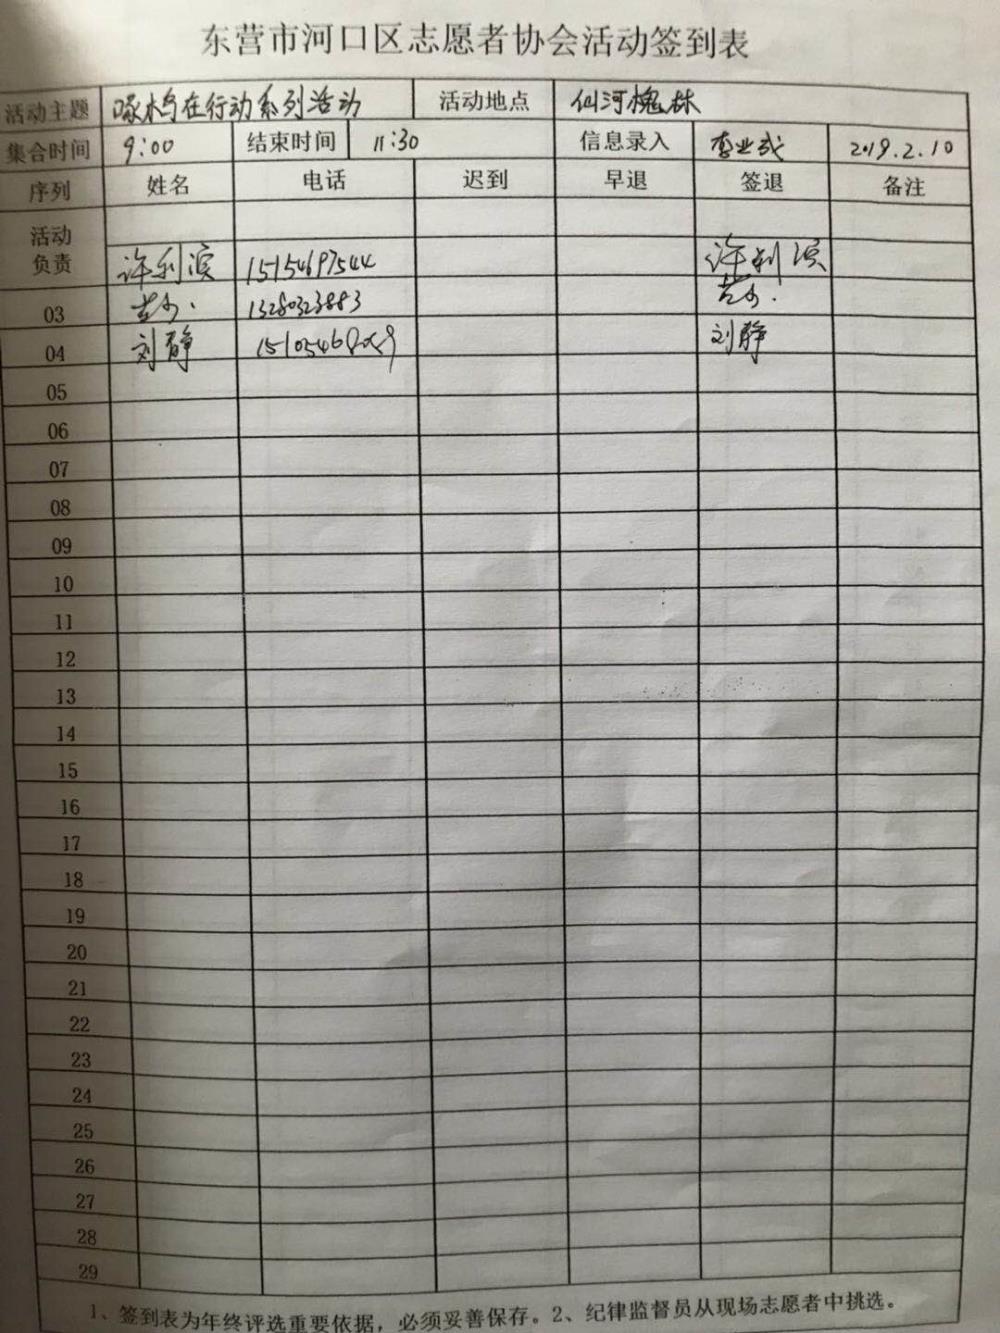 东营市河口区志愿者协会活动签到表
活动主题 啄木鸟在行动系列活动 活动地点 仙河槐林
集合时间 9:00 结束时间 11:30 信息录入 2019.2.10
序列 姓名 电话 迟到 早退 签退 备注
活动
负责
许利滨 15154697544 许利滨
03 13280323883
04 刘静 刘静
05
06
07
08
09
10
11
12
13
14
15
16
17
18
19
20
21
22
23
24
25
26
27
28
29
1、签到表为年终评选重要依据，必须妥善保存。2、纪律监督员从现场志愿者中挑选。